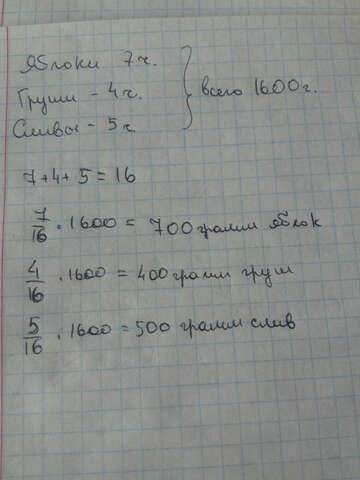 Яблоки 7 ч.
Груши - 4 ч.
Сливы - 5 ч.
всего 1600 г.
7+4+5=16
7/16 · 1600 = 700 грамм яблок
4/16 · 1600 = 400 грамм груш
5/16 · 1600 = 500 грамм слив